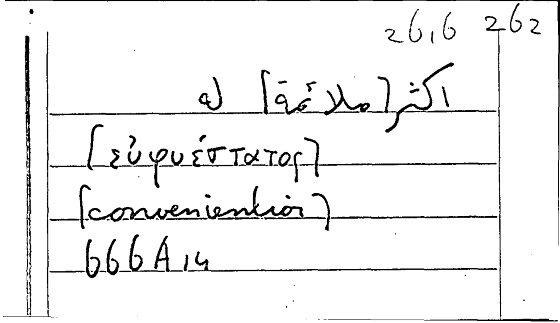 26,6 262
اكثر [ملائمة] له
[εὐφυέστατος]
[convenientior]
666A14